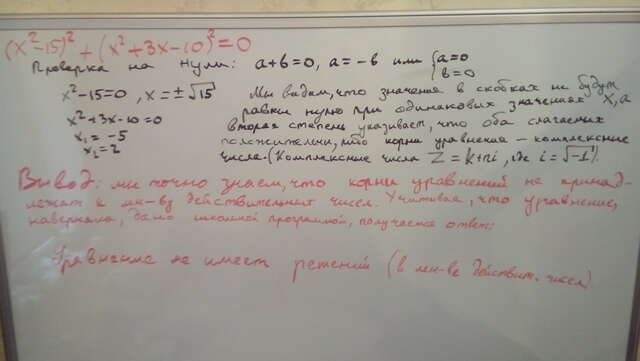 (x²-15)² + (x²+3x-10)² = 0
Проверка на нули: a+b=0, a=-b или {a=0
b=0
x²-15=0, x=±√15
x²+3x-10=0
x₁=-5
x₂=2
Мы видим, что значения в скобках не будут
равны нулю при одинаковых значениях x, а
вторая степень указывает, что оба слагаемых
положительны, либо корни уравнения - комплексные
числа. (Комплексные числа Z=k+ni, где i=√-1).
Вывод: мы точно знаем, что корни уравнений не принад-
лежат к мн-ву действительных чисел. Учитывая, что уравнение,
наверняка, дано школьной программой, получается ответ:
Уравнение не имеет решений (в мн-ве действит. чисел)